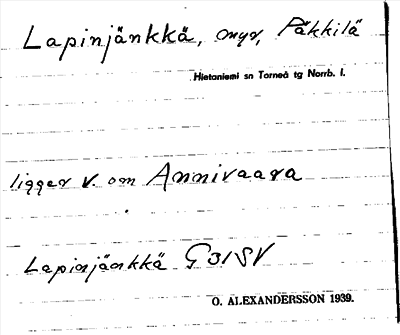 Lapinjänkkä, myr, Päkkilä
Hietaniemi sn Torneå tg Norrb. l.
ligger v. om Annivaara
Lapinjänkkä G31SV
O. ALEXANDERSSON 1939.